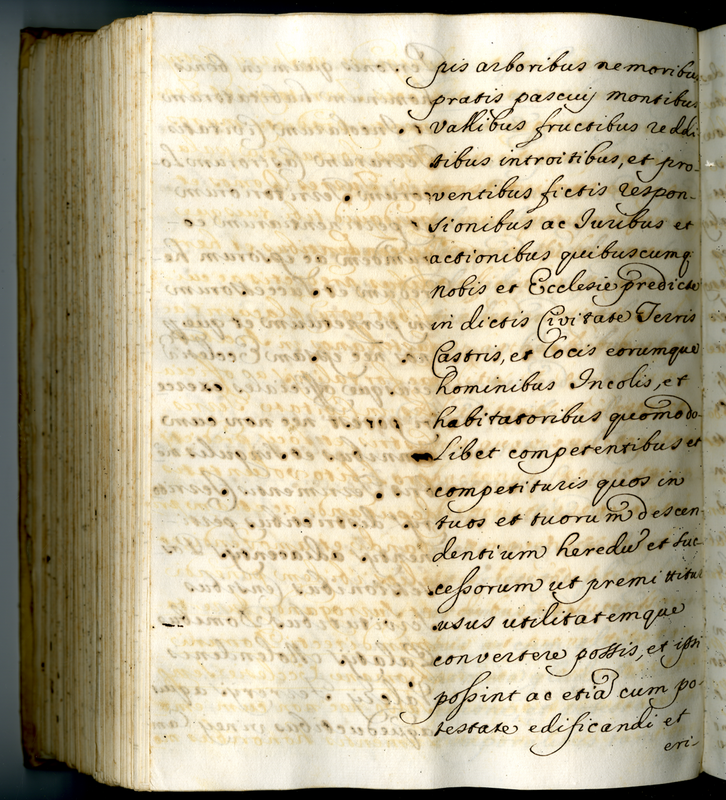 pis arboribus nemoribus
pratis pascuij montibus
Vallibus fructibus reddi
tibus introitibus, et pro-
ventibus fictis respon-
sionibus ac Iuribus et
actionibus quibuscumq
nobis et Ecclesie predicte
in dictis Civitate Terris
Castris, et locis eorumque
hominibus Incolis, et
habitatoribus quomodo
Libet competentibus et
competituris quos in
tuos et tuorum descen
dentium heredu et suc-
cessorum ut premittitur
usus utilitatemque
convertere possis, et ipsi
possint ac etiã cum po
testate edificandi et
eri-